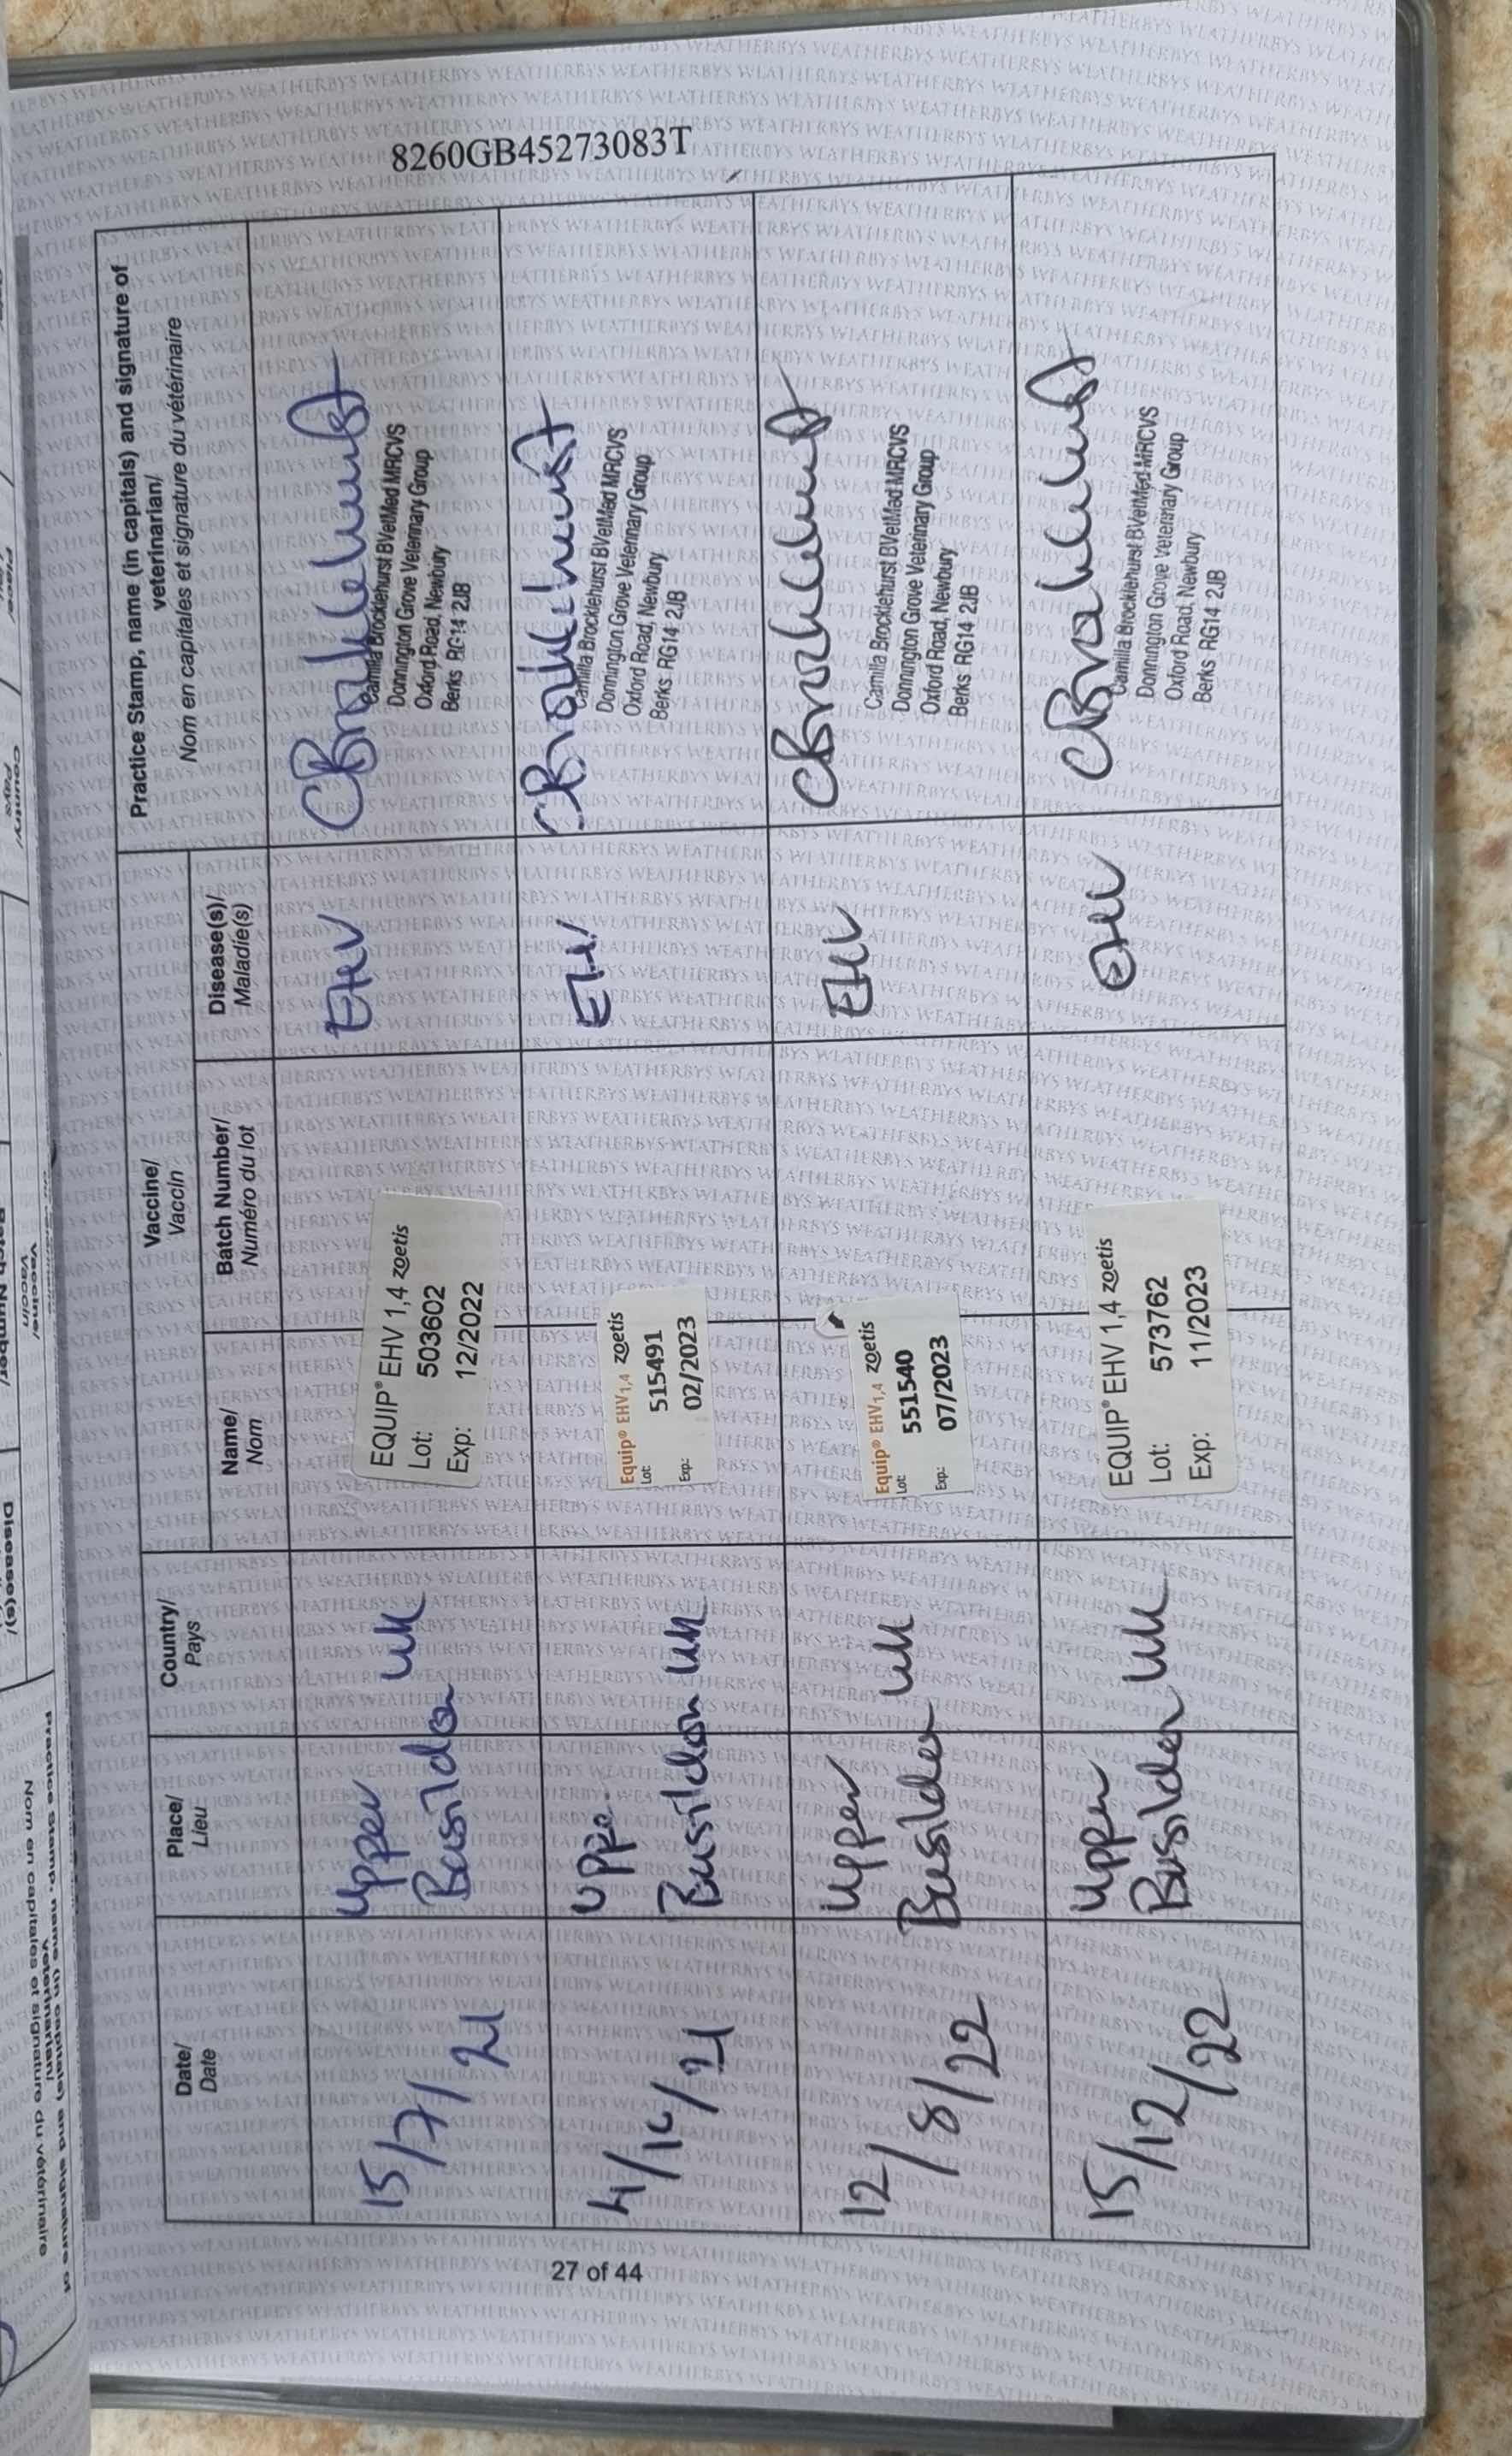 8260GB45273083T
Date/
Date
Place/
Lieu
Country/
Pays
Vaccine/
Vaccin
Name/
Nom
Batch Number/
Numéro du lot
Disease(s)/
Maladie(s)
Practice Stamp, name (in capitals) and signature of
veterinarian/
Nom en capitales et signature du vétérinaire
15/7/21
Upper
Basildon UK
EQUIP® EHV 1,4 zoetis
Lot: 503602
Exp: 12/2022
EHV
CBrocklehurst
Camilla Brocklehurst BVetMed MRCVS
Donnington Grove Veterinary Group
Oxford Road, Newbury
Berks RG14 2JB
Uppe
Basildon UK
Equip® EHV1,4 zoetis
Lot: 515491
Exp.: 02/2023
EHV
CBrocklehurst
Camilla Brocklehurst BVetMed MRCVS
Donnington Grove Veterinary Group
Oxford Road, Newbury
Berks RG14 2JB
12/8/22
Upper
Basildon UK
Equip® EHV1,4 zoetis
Lot: 551540
Exp.: 07/2023
EHV
CBrocklehurst
Camilla Brocklehurst BVetMed MRCVS
Donnington Grove Veterinary Group
Oxford Road, Newbury
Berks RG14 2JB
15/12/22
Upper
Basildon UK
EQUIP® EHV 1,4 zoetis
Lot: 573762
Exp: 11/2023
EHV
CBrocklehurst
Camilla Brocklehurst BVetMed MRCVS
Donnington Grove Veterinary Group
Oxford Road, Newbury
Berks RG14 2JB
27 of 44
Practice Stamp, name (in capitals) and signature of
veterinarian/
Nom en capitales et signature du vétérinaire
Vaccine/
Vaccin
Disease(s)/
Country/
Pays
WEATHERBYS WEATHERBYS WEATHERBYS